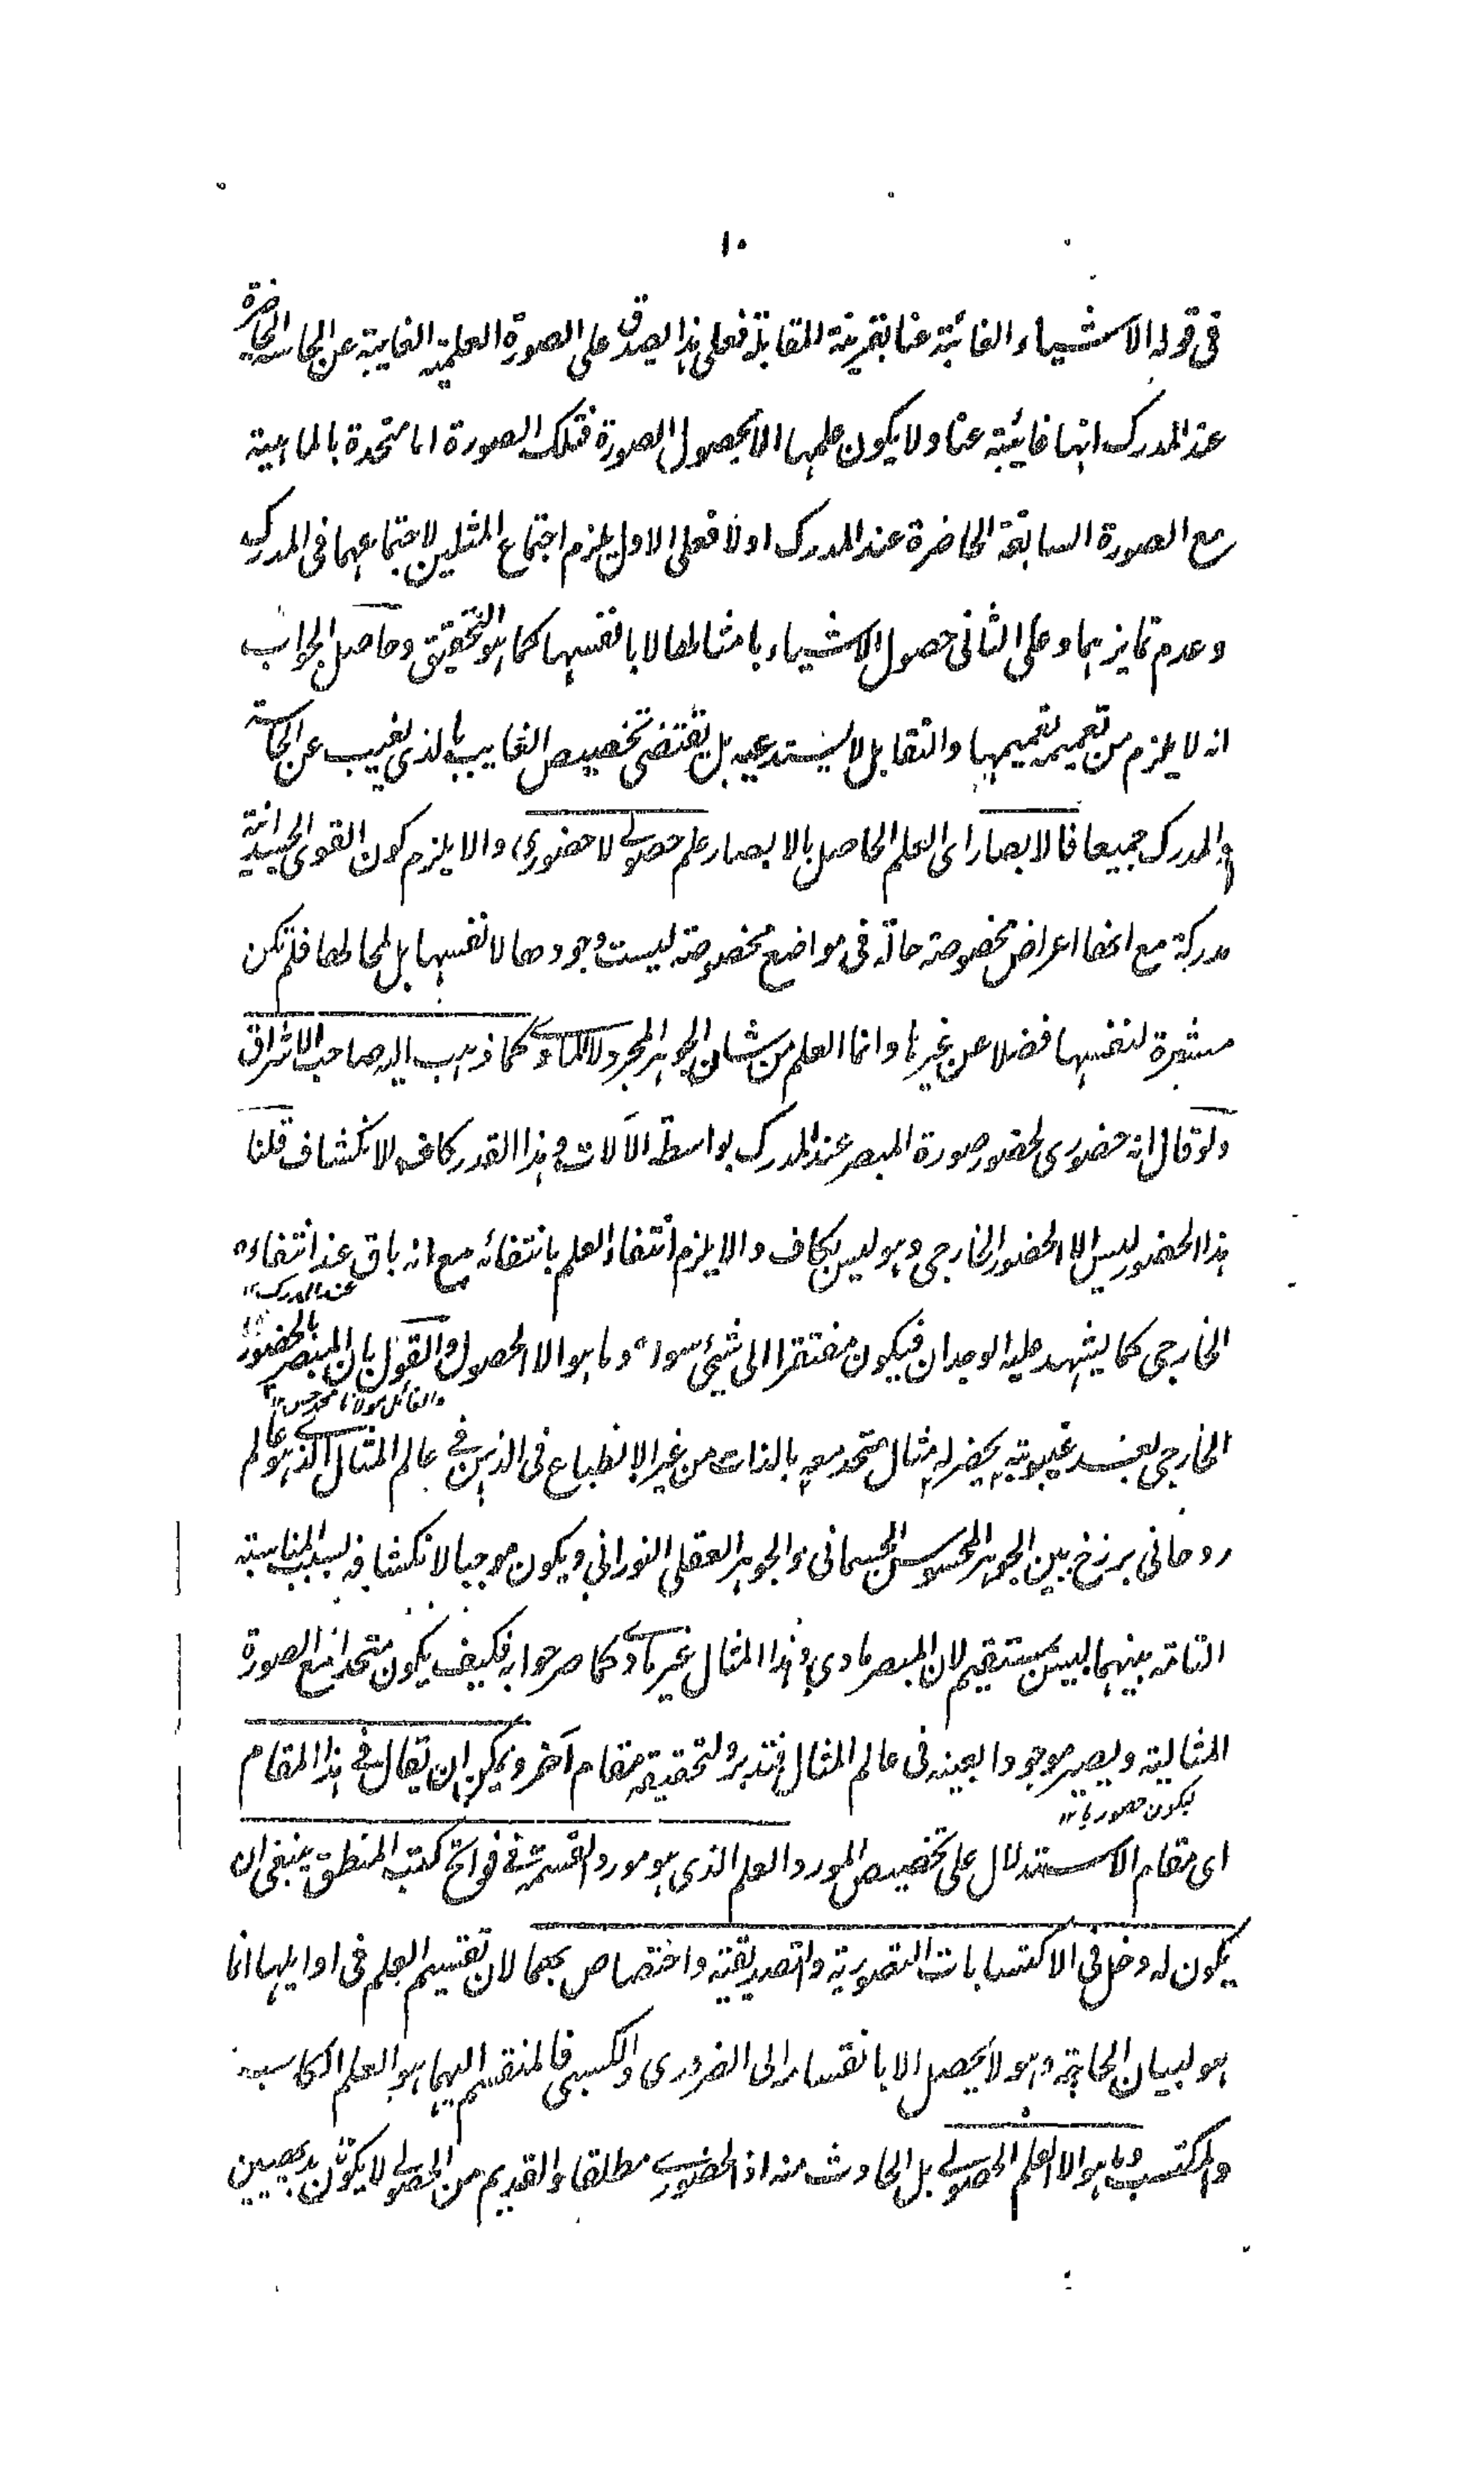 ١٠
فى قوله الاشياء الغائبة عنا بقرينة المقابلة فعلى هذا يصدق على الصورة العلمية الغايبة عن الحاسة الحاضرة
عند المدرك انها غائبة عنا ولا يكون علمها الا بحصول الصورة فتلك الصورة اما متحدة بالماهية
مع الصورة السابقة الحاضرة عند المدرك اولا فعلى الاول يلزم اجتماع المثلين لاجتماعهما فى المدرك
وعدم تمايزهما وعلى الثانى حصول الاشياء بامثالها لا بانفسها كما هو التحقيق وحاصل الجواب
انه لا يلزم من تعميمه تعميمها والتقابل لا يستدعيه بل يقتضى تخصيص الغايب بالذى يغيب عن الحاسة
والمدرك جميعا فالابصار اى العلم الحاصل بالابصار علم حصولى لا حضورى والا يلزم كون القوى الجسدانية
مدركة مع انها اعراض مخصوصة حالة فى مواضع مخصوصة ليست وجودها لانفسها بل لمحالها فلم تكن
مشعرة لنفسها فضلا عن غيرها وانما العلم من شان الجوهر المجرد لا المادى كما ذهب اليه صاحب الاشراق
ولو قال انه حضورى لحضور صورة المبصر عند المدرك بواسطة الآلات وهذا القدر كاف للانكشاف قلنا
هذا الحضور ليس الا الحضور الخارجى وهو ليس بكاف والا يلزم انتفاء العلم بانتفائه مع انه باق عند انتفاءه
عند المدرك ١٢
الخارجى كما يشهد عليه الوجدان فيكون مفتقرا الى شيئ سواه وما هو الا الحصول والقول بان المبصر بالحضور
والقائل مولانا محمد حسن ١٢
الخارجى بعد غيبوبته يحضر له مثال متحد معه بالذات من غير الانطباع فى الذهن فى عالم المثال الذى هو عالم
روحانى برزخ بين الجوهر المحسوس الجسمانى والجوهر العقلى النورانى ويكون موجبا لانكشافه بسبب المناسبة
التامة بينهما ليس بمستقيم لان المبصر مادى وهذا المثال غير مادى كما صرحوا به فكيف يكون متحدا مع الصورة
المثالية ويصير موجودا بعينه فى عالم المثال فتدبر ولتحقيقه مقام آخر ويمكن ان يقال فى هذا المقام
ليكون حضوريا ١٢
اى مقام الاستدلال على تخصيص المورد العلم الذى هو مورد القسمة فى فواتح كتب المنطق ينبغى ان
يكون له دخل فى الاكتسابات التصورية والتصديقية واختصاص بهما لان تقسيم العلم فى اوايلها انما
هو لبيان الحاجة وهو لا يحصل الا بانقسامه الى الضرورى والكسبى فالمنقسم اليهما هو العلم الكاسب
والمكتسب وما هو الا العلم الحصولى بل الحادث منه اذ الحضورى مطلقا والقديم من الحصولى لا يكونان بديهيين